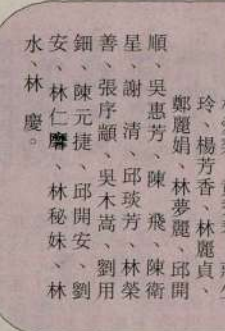 玲、楊芳香、林麗貞、
鄭麗娟、林夢麗、邱開
順、吳惠芳、陳　飛、陳衛
星、謝　清、邱琰芳、林榮
善、張序顓、吳木嵩、劉用
鈿、陳元捷、邱開安、劉
安、林仁廳、林秘妹、林
水、林　慶。